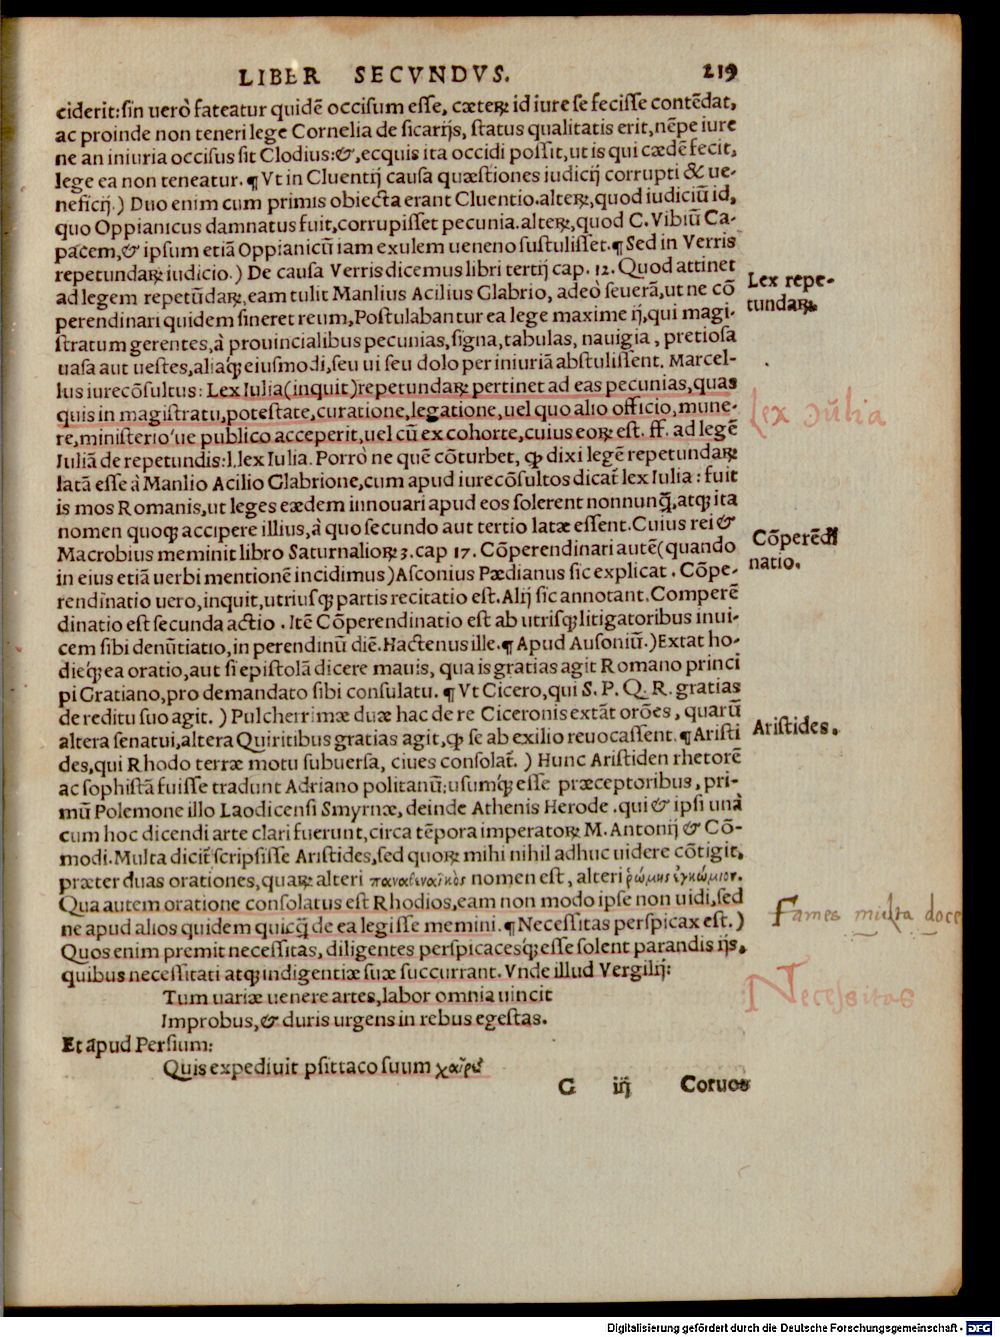 LIBER SECVNDVS. 219
ciderit:sin uerò fateatur quidē occisum esse, cæterꝝ id iure se fecisse contēdat,
ac proinde non teneri lege Cornelia de sicarijs, status qualitatis erit,nēpe iure
ne an iniuria occisus sit Clodius:&,ecquis ita occidi possit,ut is qui cædē fecit,
lege ea non teneatur. ¶ Vt in Cluentij causa quæstiones iudicij corrupti & ue-
neficij.) Duo enim cum primis obiecta erant Cluentio.alterꝝ,quod iudiciū id,
quo Oppianicus damnatus fuit,corrupisset pecunia.alterꝝ,quod C. Vibiū Ca-
pacem,& ipsum etiā Oppianicū iam exulem ueneno sustulisset.¶ Sed in Verris
repetundaꝝ iudicio.) De causa Verris dicemus libri tertij cap. 12. Quod attinet
Lex repe-
ad legem repetūdaꝝ,eam tulit Manlius Acilius Glabrio, adeò seuerā,ut ne cō
tundaꝝ.
perendinari quidem sineret reum,Postulabantur ea lege maxime ij,qui magi-
stratum gerentes,à prouincialibus pecunias,signa,tabulas, nauigia, pretiosa
uasa aut uestes,aliaq́ꝫ eiusmodi,seu ui seu dolo per iniuriā abstulissent. Marcel-
lus iurecōsultus: Lex Iulia(inquit)repetundaꝝ pertinet ad eas pecunias,quas
quis in magistratu,potestate,curatione,legatione,uel quo alio officio,mune-
Lex Iulia
re,ministerio'ue publico acceperit,uel cū ex cohorte,cuius eoꝝ est. ff. ad legē
Iuliā de repetundis:l.lex Iulia. Porrò ne quē cōturbet, ꝙ dixi legē repetundaꝝ
latā esse à Manlio Acilio Glabrione,cum apud iurecōsultos dicat̃ lex Iulia: fuit
is mos Romanis,ut leges eædem innouari apud eos solerent nonnunq̃,atqꝫ ita
nomen quoqꝫ accipere illius,à quo secundo aut tertio latæ essent.Cuius rei &
Macrobius meminit libro Saturnalioꝝ 3. cap 17. Cōperendinari autē(quando
Cōperēdi
natio.
in eius etiā uerbi mentionē incidimus)Asconius Pædianus sic explicat. Cōpe-
rendinatio uero,inquit,utriusqꝫ partis recitatio est.Alij sic annotant.Comperē
dinatio est secunda actio. Itē Cōperendinatio est ab utrisqꝫ litigatoribus inui-
cem sibi denūtiatio,in perendinū diē.Hactenus ille.¶ Apud Ausoniū.)Extat ho-
dieq́ꝫ ea oratio,aut si epistolā dicere mauis, qua is gratias agit Romano princi
pi Gratiano,pro demandato sibi consulatu. ¶ Vt Cicero,qui S. P. Q. R. gratias
de reditu suo agit.) Pulcherrimæ duæ hac de re Ciceronis extāt orōes, quarū
Aristides.
altera senatui,altera Quiritibus gratias agit,ꝙ se ab exilio reuocassent.¶ Aristi
des,qui Rhodo terræ motu subuersa, ciues consolat̃.) Hunc Aristiden rhetorē
ac sophistā fuisse tradunt Adriano politanū:usumq́ꝫ esse præceptoribus, pri-
mū Polemone illo Laodicensi Smyrnæ, deinde Athenis Herode. qui & ipsi unà
cum hoc dicendi arte clari fuerunt,circa tēpora imperatoꝝ M. Antonij & Cō-
modi.Multa dicit̃ scripsisse Aristides,sed quoꝝ mihi nihil adhuc uidere cōtigit,
præter duas orationes,quaꝝ alteri παναθηναϊκὸς nomen est, alteri ῥώμης ἐγκώμιον.
Qua autem oratione consolatus est Rhodios,eam non modo ipse non uidi,sed
Fames multa doce
ne apud alios quidem quicq̃ de ea legisse memini. ¶ Necessitas perspicax est.)
Quos enim premit necessitas, diligentes perspicacesq́ꝫ esse solent parandis ijs,
quibus necessitati atqꝫ indigentiæ suæ succurrant. Vnde illud Vergilij:
Necessitas
Tum uariæ uenere artes,labor omnia uincit
Improbus,& duris urgens in rebus egestas.
Et apud Persium:
Quis expediuit psittaco suum χαῖρε
G iij Coruos
Digitalisierung gefördert durch die Deutsche Forschungsgemeinschaft - DFG